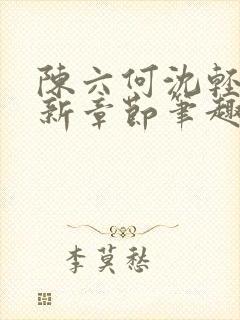 陳六何沈輕
新章節筆趣
李莫愁